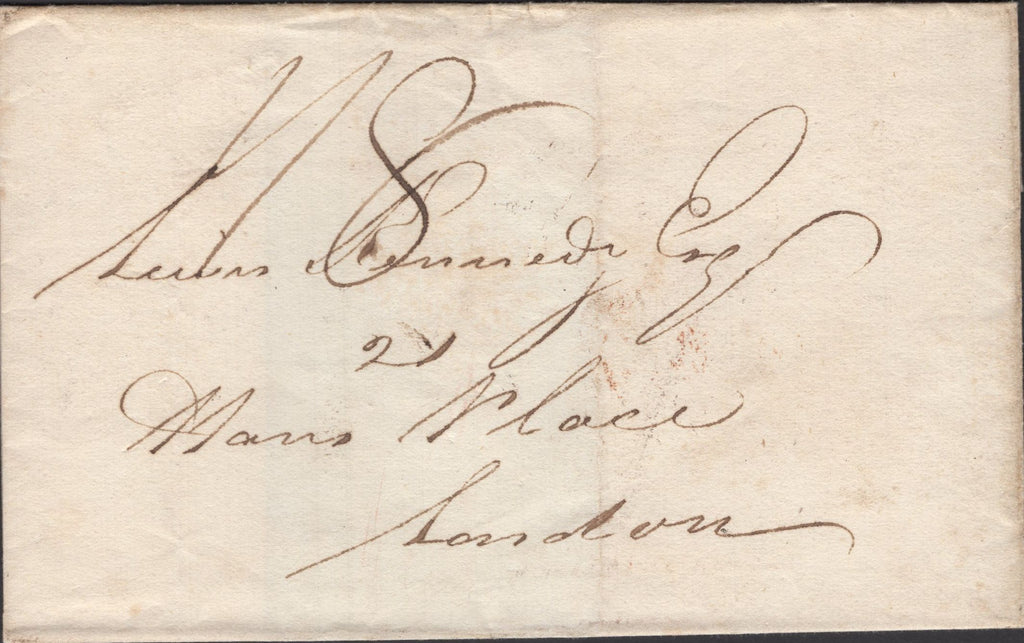 8
Lewis Kennedy Esq
21
Hans Place
London